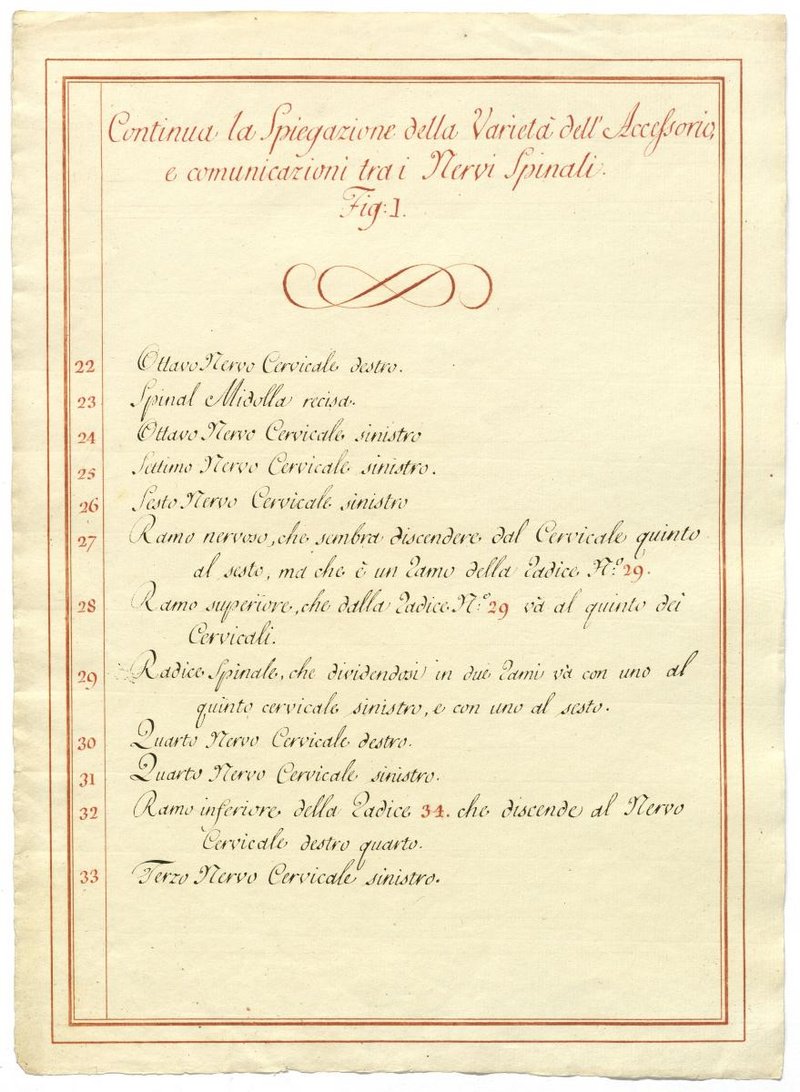 Continua la Spiegazione della Varietà dell' Accessorio,
e comunicazioni tra i Nervi Spinali.
Fig: 1.
22 Ottavo Nervo Cervicale destro.
23 Spinal Midolla recisa.
24 Ottavo Nervo Cervicale sinistro
25 Settimo Nervo Cervicale sinistro.
26 Sesto Nervo Cervicale sinistro
27 Ramo nervoso, che sembra discendere dal Cervicale quinto
al sesto, ma che è un ramo della radice N.º 29.
28 Ramo superiore, che dalla radice N.º 29 và al quinto dei
Cervicali.
29 Radice Spinale, che dividendosi in due rami và con uno al
quinto cervicale sinistro, e con uno al sesto.
30 Quarto Nervo Cervicale destro.
31 Quarto Nervo Cervicale sinistro.
32 Ramo inferiore della radice 34. che discende al Nervo
Cervicale destro quarto.
33 Terzo Nervo Cervicale sinistro.